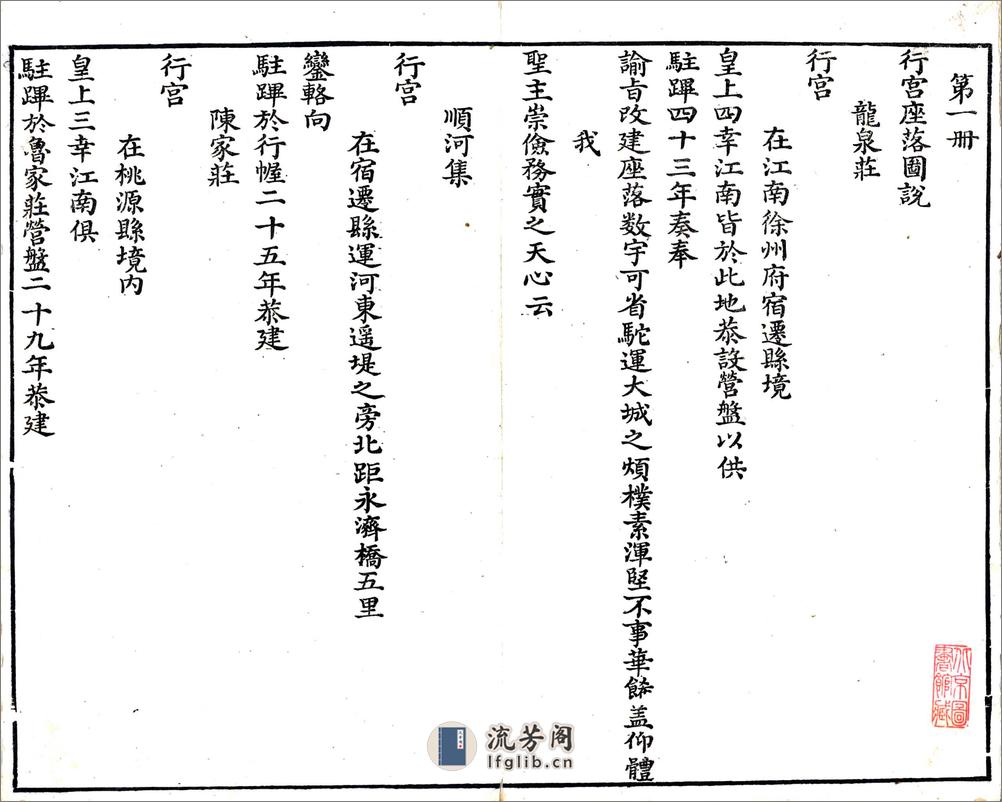 第一册
行宫座落圖說
龍泉莊
行宫
在江南徐州府宿遷縣境
皇上四幸江南皆於此地恭設營盤以供
駐蹕四十三年奏奉
諭旨改建座落数宇可省駝運大城之煩樸素渾堅不事華餙盖仰體
我
聖主崇儉務實之天心云
順河集
行宫
在宿遷縣運河東遥堤之旁北距永濟橋五里
鑾輅向
駐蹕於行幄二十五年恭建
陳家莊
行宫
在桃源縣境内
皇上三幸江南俱
駐蹕於魯家莊營盤二十九年恭建
北京圖
書館藏
流芳阁
lfglib.cn